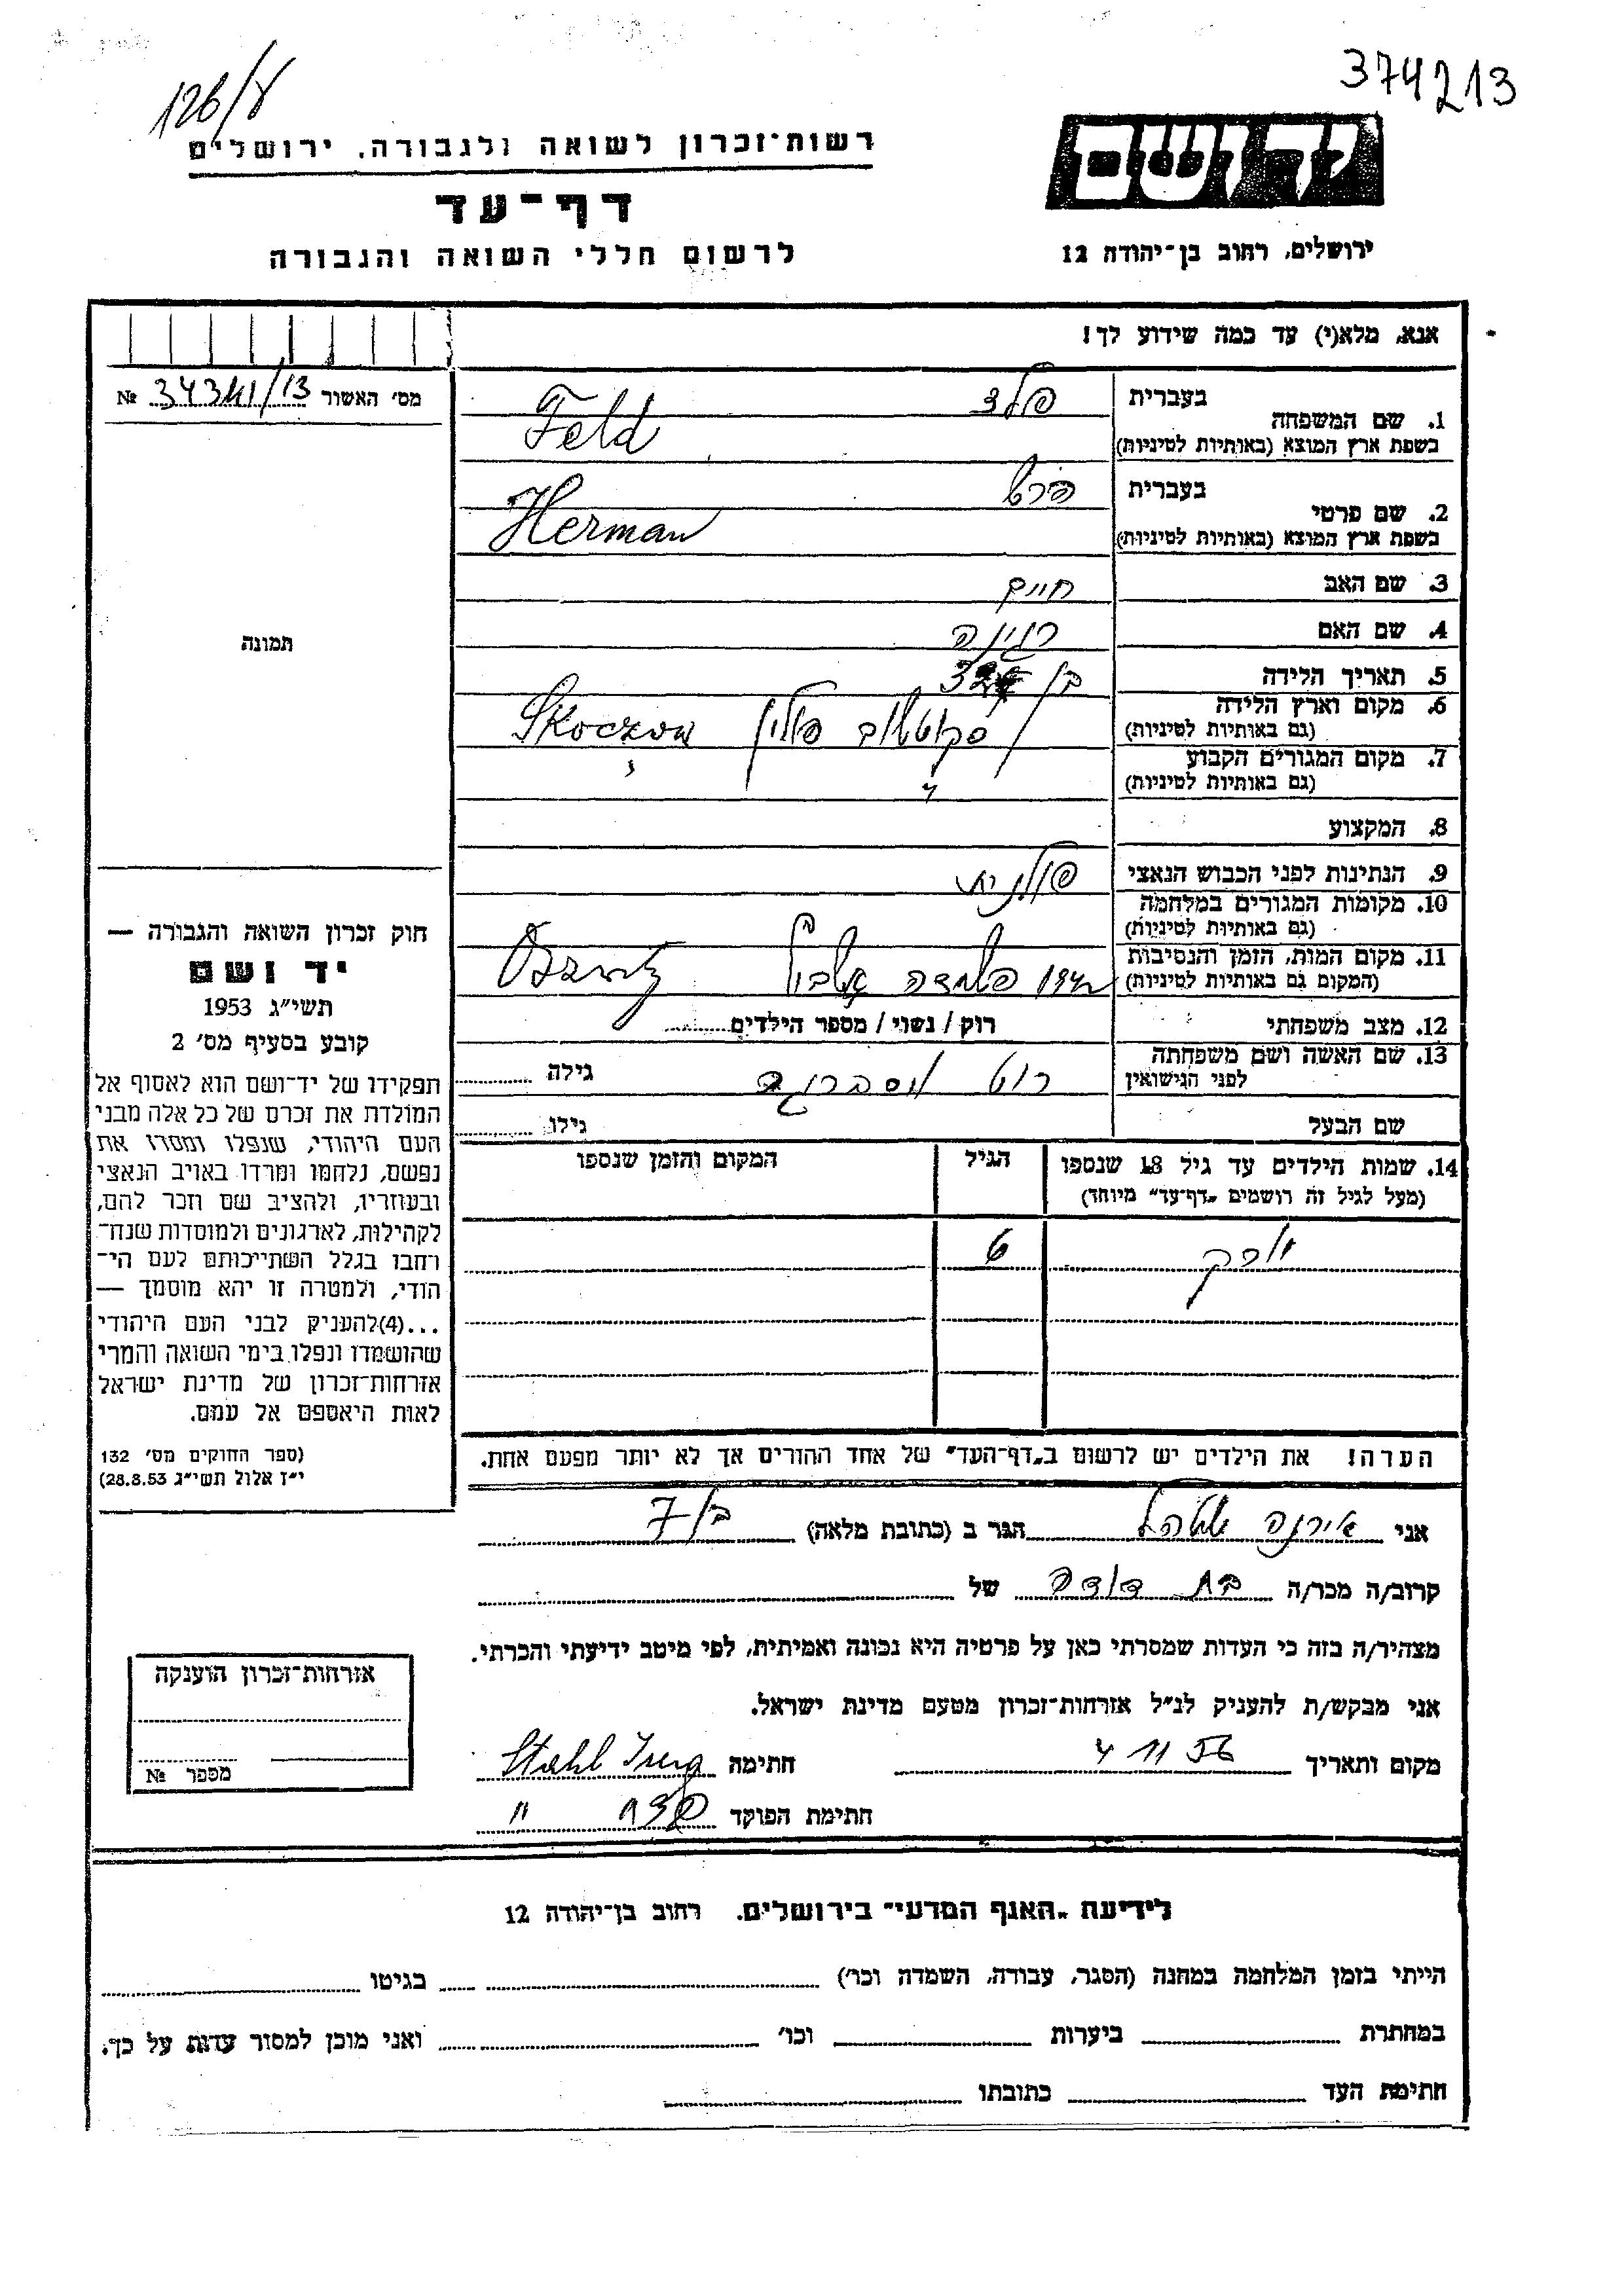 126/8
374213
רשות־זכרון לשואה ולגבורה, ירושלים
דף־עד
לרשום חללי השואה והגבורה
יד ושם
ירושלים, רחוב בן־יהודה 12
אנא, מלא(י) עד כמה שידוע לך!
מס׳ האשור №
1. שם המשפחה
בעברית
פלד
בשפת ארץ המוצא (באותיות לטיניות)
Feld
2. שם פרטי
בעברית
בשפת ארץ המוצא (באותיות לטיניות)
Herman
3. שם האב
חיים
4. שם האם
רגינה
5. תאריך הלידה
בן
6. מקום וארץ הלידה
(גם באותיות לטיניות)
פולין Skoczow
7. מקום המגורים הקבוע
(גם באותיות לטיניות)
8. המקצוע
9. הנתינות לפני הכבוש הנאצי
פולנית
10. מקומות המגורים במלחמה
(גם באותיות לטיניות)
11. מקום המות, הזמן והנסיבות
(המקום גם באותיות לטיניות)
12. מצב משפחתי
רוק / נשוי / מספר הילדים
13. שם האשה ושם משפחתה
לפני הנישואין
רוט
גילה
שם הבעל
גילו
14. שמות הילדים עד גיל 18 שנספו
(מעל לגיל זה רושמים „דף־עד״ מיוחד)
הגיל
המקום והזמן שנספו
6
הערה! את הילדים יש לרשום ב„דף־העד״ של אחד ההורים אך לא יותר מפעם אחת.
תמונה
חוק זכרון השואה והגבורה —
יד ושם
תשי״ג 1953
קובע בסעיף מס׳ 2
תפקידו של יד־ושם הוא לאסוף אל
המולדת את זכרם של כל אלה מבני
העם היהודי, שנפלו ומסרו את
נפשם, נלחמו ומרדו באויב הנאצי
ובעוזריו, ולהציב שם וזכר להם,
לקהילות, לארגונים ולמוסדות שנח־
רחבו בגלל השתייכותם לעם הי־
הודי, ולמטרה זו יהא מוסמך —
...(4)להעניק לבני העם היהודי
שהושמדו ונפלו בימי השואה והמרי
אזרחות־זכרון של מדינת ישראל
לאות היאספם אל עמם.
(ספר החוקים מס׳ 132
י״ז אלול תשי״ג 28.8.53)
אני אירנה שטהל הגר ב (כתובת מלאה)
קרוב/ה מכר/ה בת דודה של
מצהיר/ה בזה כי העדות שמסרתי כאן על פרטיה היא נכונה ואמיתית, לפי מיטב ידיעתי והכרתי.
אני מבקש/ת להעניק לנ״ל אזרחות־זכרון מטעם מדינת ישראל.
מקום ותאריך 4 11 56 חתימה Stahl Irena
חתימת הפוקד
אזרחות־זכרון הוענקה
מספר №
לידיעת „האגף המדעי״ בירושלים. רחוב בן־יהודה 12
הייתי בזמן המלחמה במחנה (הסגר, עבודה, השמדה וכר׳) בגיטו
במחתרת ביערות וכו׳ ואני מוכן למסור עדות על כך.
חתימת העד כתובתו